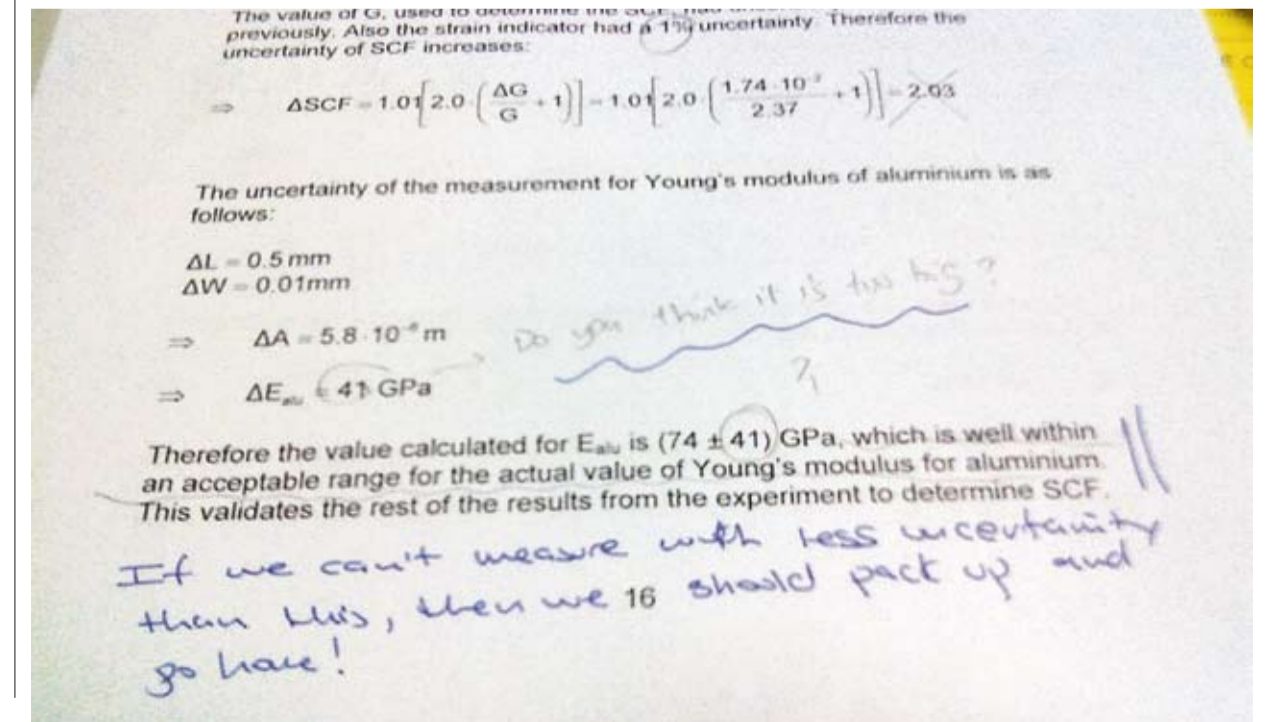 The value of G, used to determine the SCF, had
previously. Also the strain indicator had a 1% uncertainty. Therefore the
uncertainty of SCF increases:
⇒ ΔSCF = 1.01[2.0 · (ΔG/G + 1)] = 1.01[2.0 · (1.74 · 10 / 2.37 + 1)] = 2.03
The uncertainty of the measurement for Young's modulus of aluminium is as
follows:
ΔL = 0.5 mm
ΔW = 0.01mm
⇒ ΔA = 5.8 · 10 m
Do you think it is too big?
?
⇒ ΔE_alu = 41 GPa
Therefore the value calculated for E_alu is (74 ± 41) GPa, which is well within
an acceptable range for the actual value of Young's modulus for aluminium.
This validates the rest of the results from the experiment to determine SCF.
If we can't measure with less uncertainity
than this, then we should pack up and
16
go home!